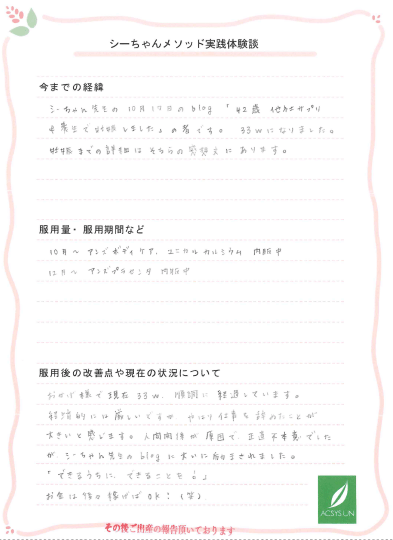 シーちゃんメソッド実践体験談
今までの経緯
シーちゃん先生の10月17日のblog「42歳 他社サプリ
卒業生で妊娠しました」の者です。33wになりました。
妊娠までの詳細はそちらの にあります。
服用量・服用期間など
10月〜 アンボディケア、ユニカルカルシウム 内服中
12月〜 内服中
服用後の改善点や現在の状況について
おかげ様で現在33w、順調に経過しています。
経済的には厳しいですが やはり仕事を辞めたことが
大きいと感じます。人間関係が原因で、正直不本意でした
が、シーちゃん先生のblogに大いに励まされました。
「できるうちに、できることを!」
お金は後で稼げばOK!(笑)
ACSYS UN.
その後ご出産の報告頂いております